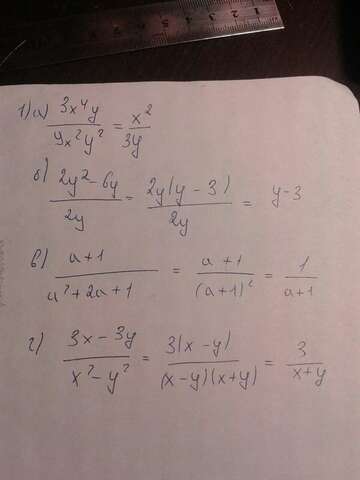 1) а) 3x⁴y / 9x²y² = x² / 3y
б) 2y² - 6y / 2y = 2y(y - 3) / 2y = y - 3
в) a + 1 / a² + 2a + 1 = a + 1 / (a + 1)² = 1 / a + 1
г) 3x - 3y / x² - y² = 3(x - y) / (x - y)(x + y) = 3 / x + y